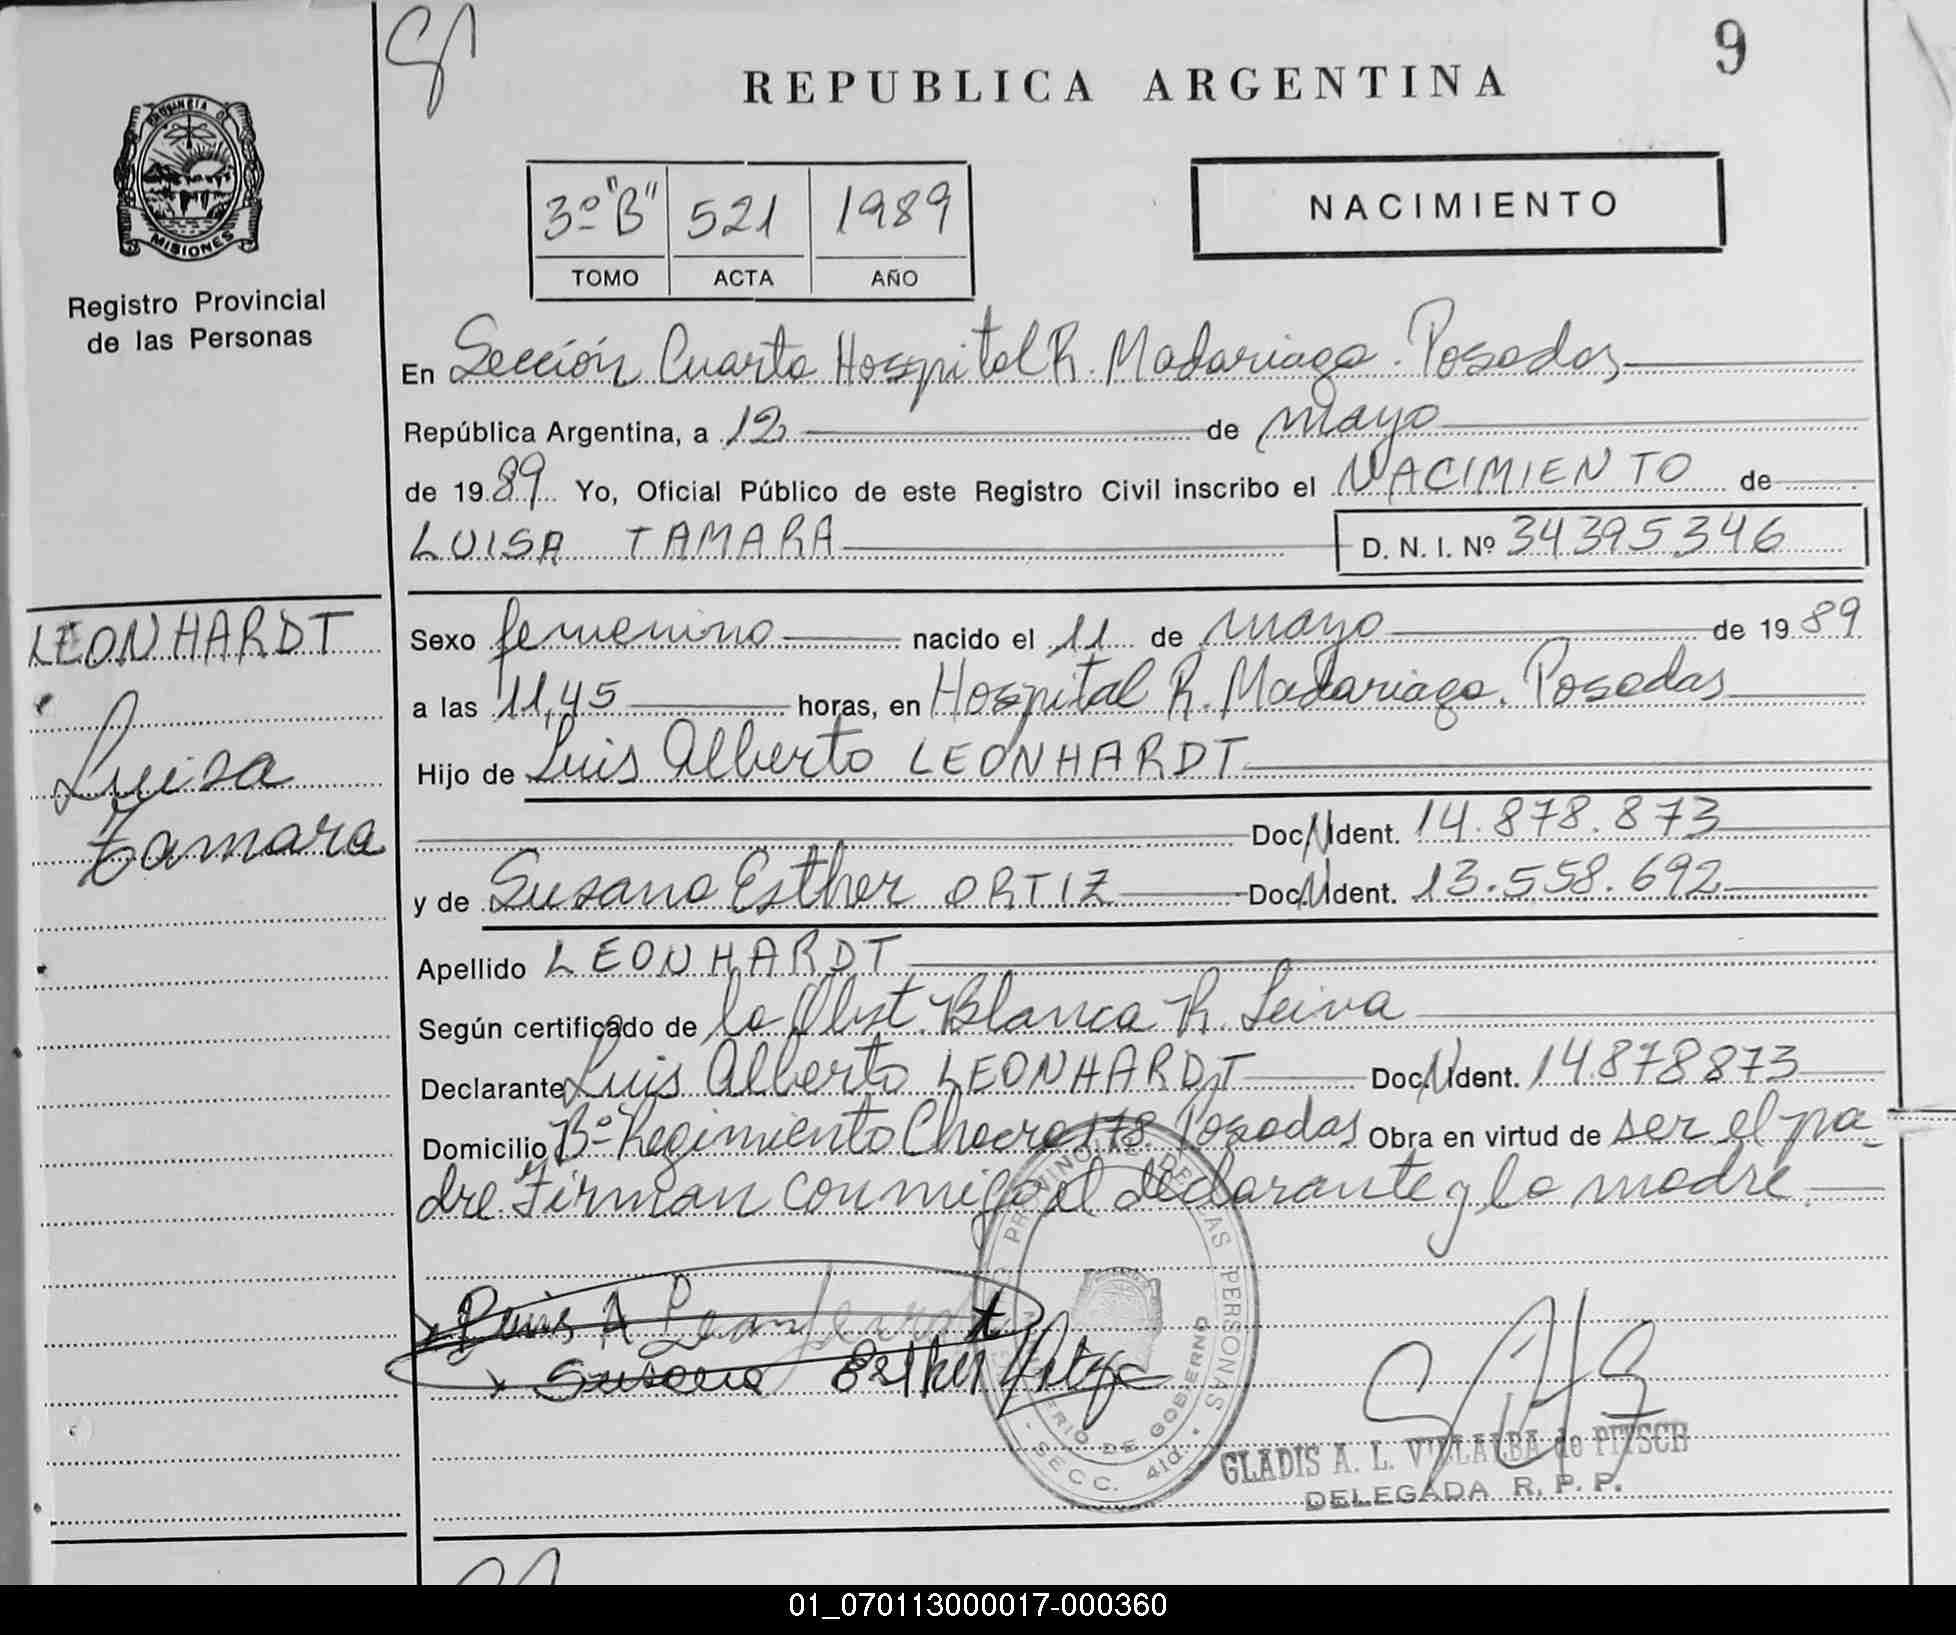 9
REPUBLICA ARGENTINA
PROVINCIA D
MISIONES
Registro Provincial
de las Personas
3º "B" 521 1989
TOMO ACTA AÑO
NACIMIENTO
En Sección Cuarta Hospital R. Madariaga. Posadas
República Argentina, a 12 de mayo
de 1989 Yo, Oficial Público de este Registro Civil inscribo el NACIMIENTO de
LUISA TAMARA D. N. I. Nº 34395346
LEONHARDT
Luisa
Tamara
Sexo femenino nacido el 11 de mayo de 1989
a las 11,45 horas, en Hospital R. Madariaga. Posadas
Hijo de Luis Alberto LEONHARDT
Doc. N Ident. 14.878.873
y de Susana Esther ORTIZ Doc. N Ident. 13.558.692
Apellido LEONHARDT
Según certificado de la Obst. Blanca R. Leiva
Declarante Luis Alberto LEONHARDT Doc. N Ident. 14878873
Domicilio Bº Regimiento Chacra 178. Posadas Obra en virtud de ser el pa-
dre. Firman conmigo el declarante y la madre.
Luis A
Susana Esther
DE LAS PERSONAS
DE GOBIERNO
SECC. 4ta.
GLADIS A. L. VILLALBA de PITSCH
DELEGADA R. P. P.
01_070113000017-000360